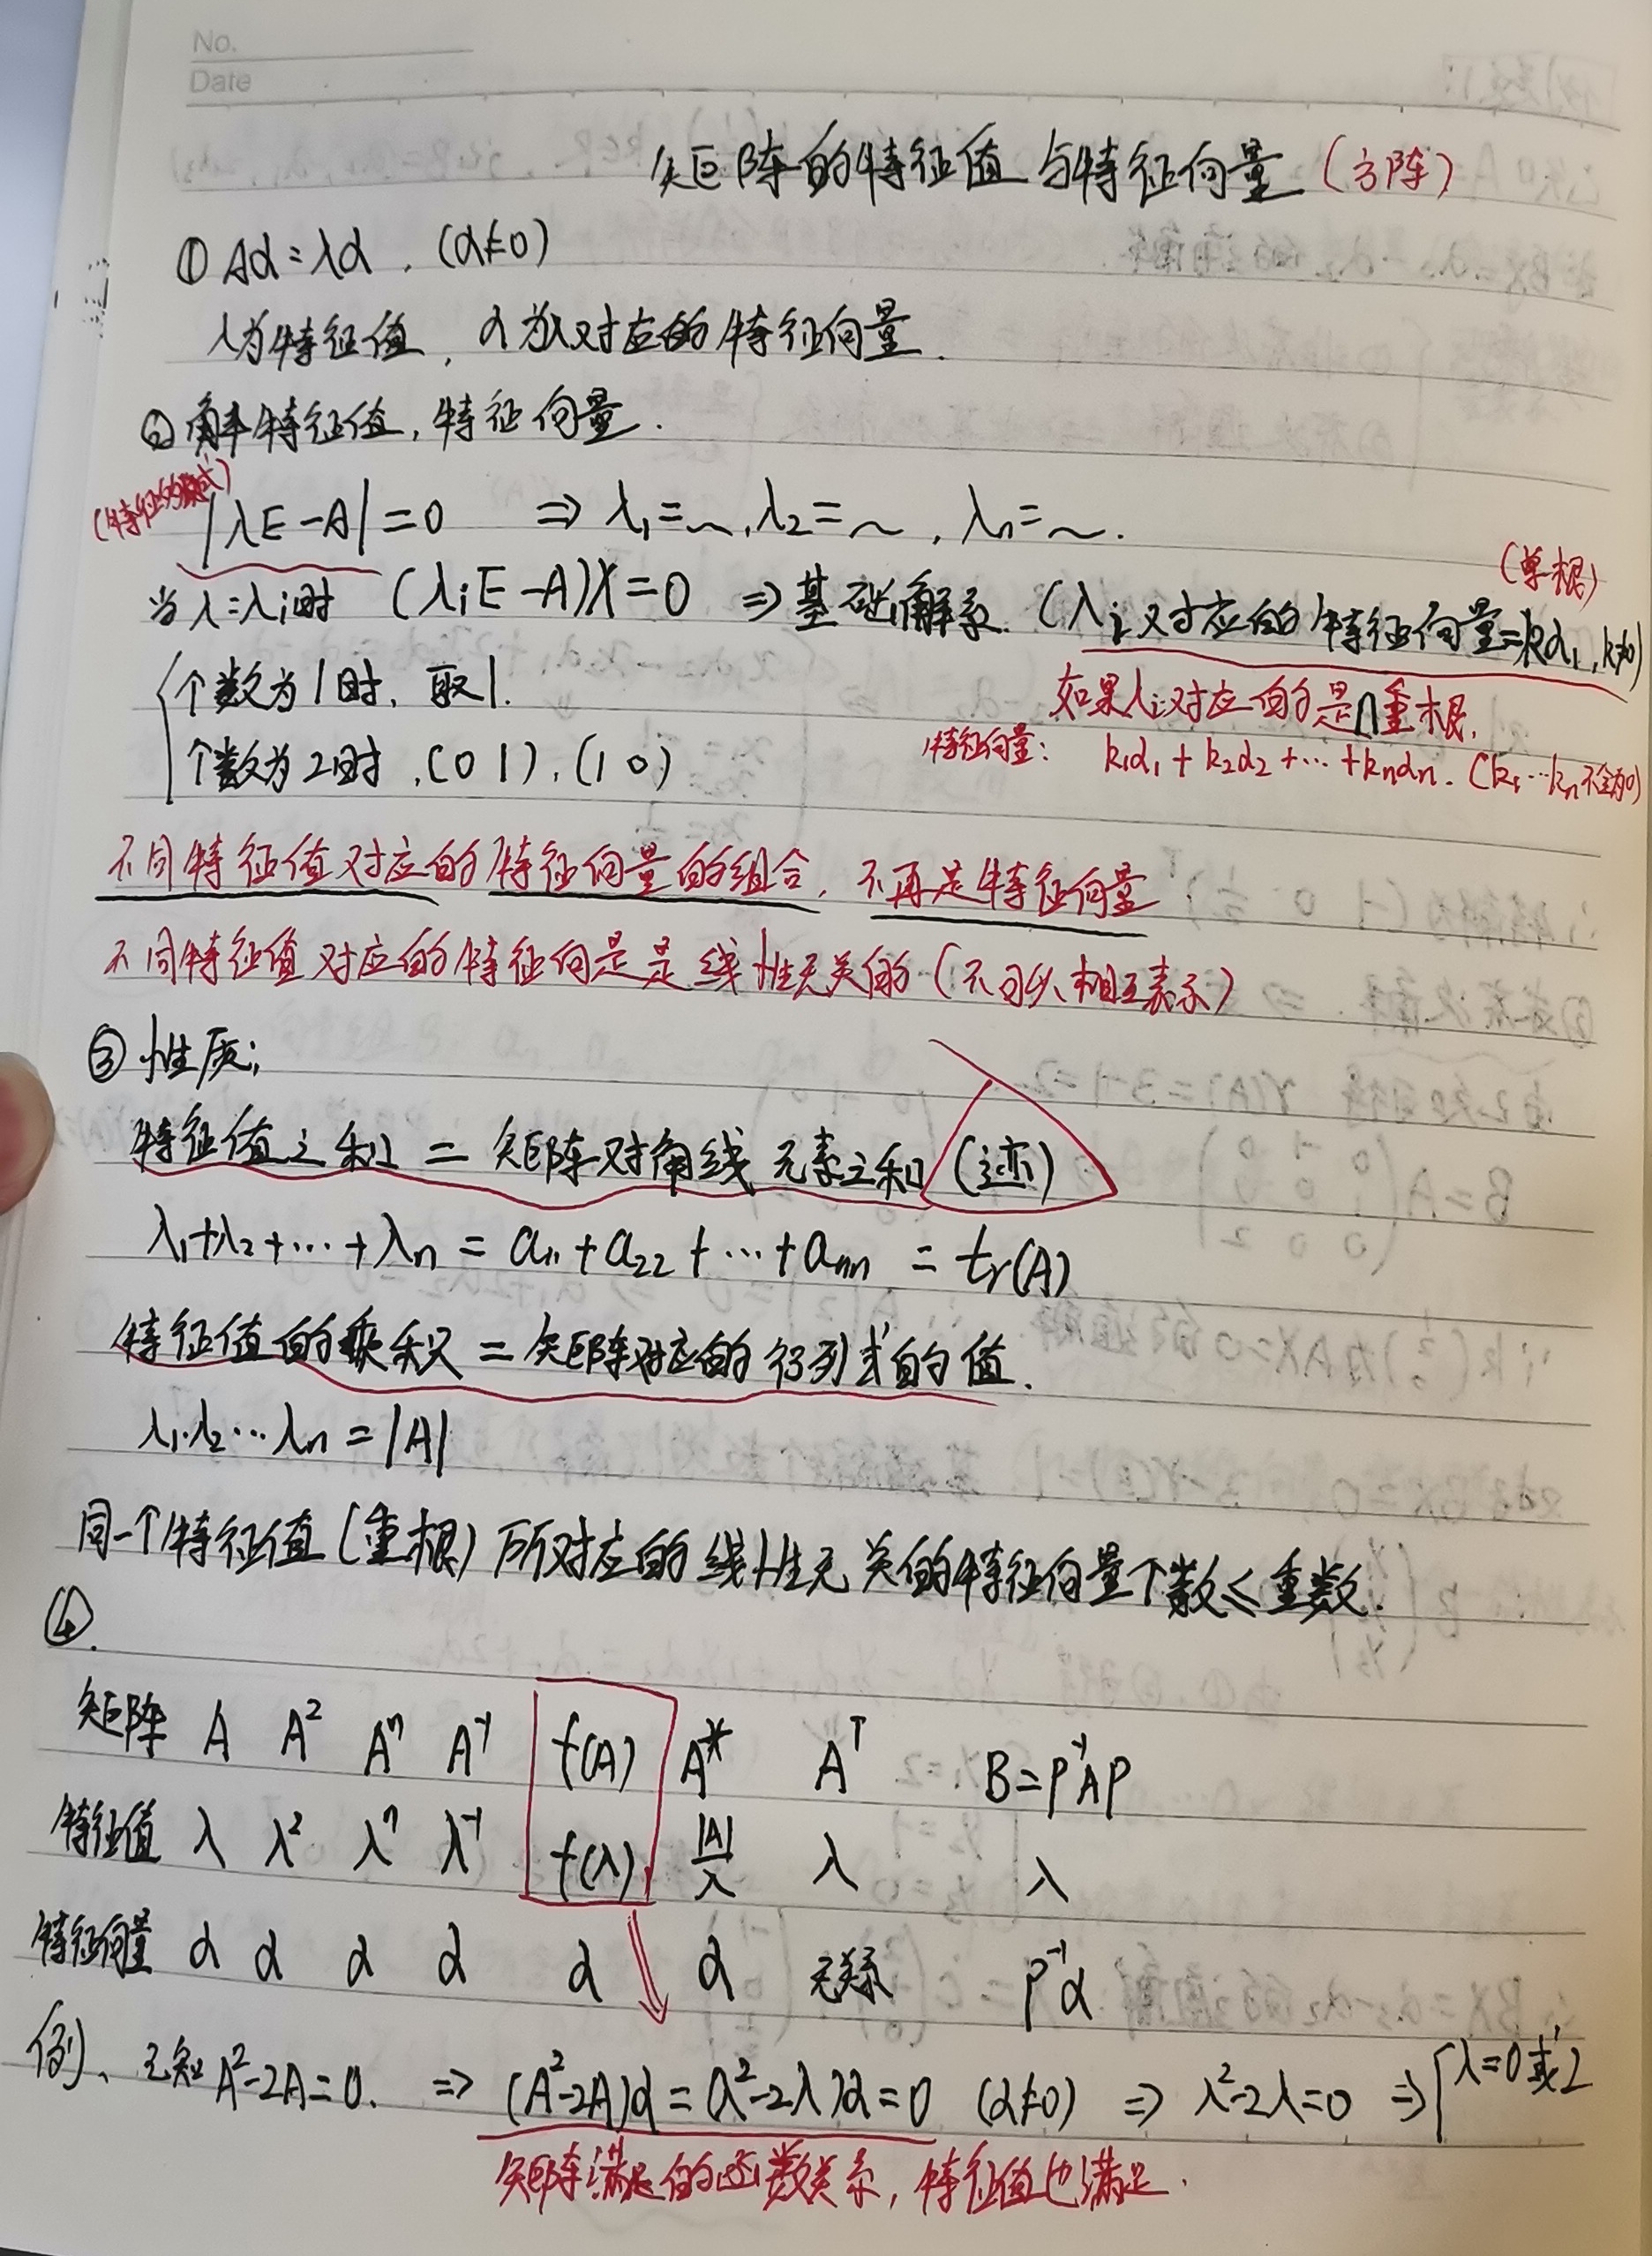 No.
Date
矩阵的特征值与特征向量(方阵)
① Aα=λα. (α≠0)
λ为特征值, α为λ对应的特征向量.
② 解特征值, 特征向量.
|λE-A|=0 ⇒ λ₁=~, λ₂=~, λn=~.
(单根)
当λ=λi时 (λiE-A)X=0 ⇒ 基础解系. (λi对应的特征向量=kα₁, k≠0)
个数为1时, 取1.
如果λi对应的是n重根,
个数为2时, (0 1), (1 0)
特征向量: k₁α₁+k₂α₂+…+knαn. (k₁…kn不全为0)
不同特征值对应的特征向量的组合, 不再是特征向量
不同特征值对应的特征向是是线性无关的(不可以相互表示)
③ 性质;
特征值之和 = 矩阵对角线元素之和 (迹)
λ₁+λ₂+…+λn = a₁₁+a₂₂+…+ann = tr(A)
特征值的乘积 = 矩阵对应的行列式的值.
λ₁·λ₂…λn = |A|
同一个特征值(重根)所对应的线性无关的特征向量个数≤重数.
④.
矩阵 A A² Aⁿ A⁻¹ f(A) A* Aᵀ B=P⁻¹AP
特征值 λ λ² λⁿ λ⁻¹ f(λ) |A|/λ λ λ
特征向量 α α α α α α 无关系 P⁻¹α
例、已知A²-2A=0. ⇒ (A²-2A)α=(λ²-2λ)α=0 (α≠0) ⇒ λ²-2λ=0 ⇒ λ=0或2
矩阵满足的函数关系, 特征值也满足.